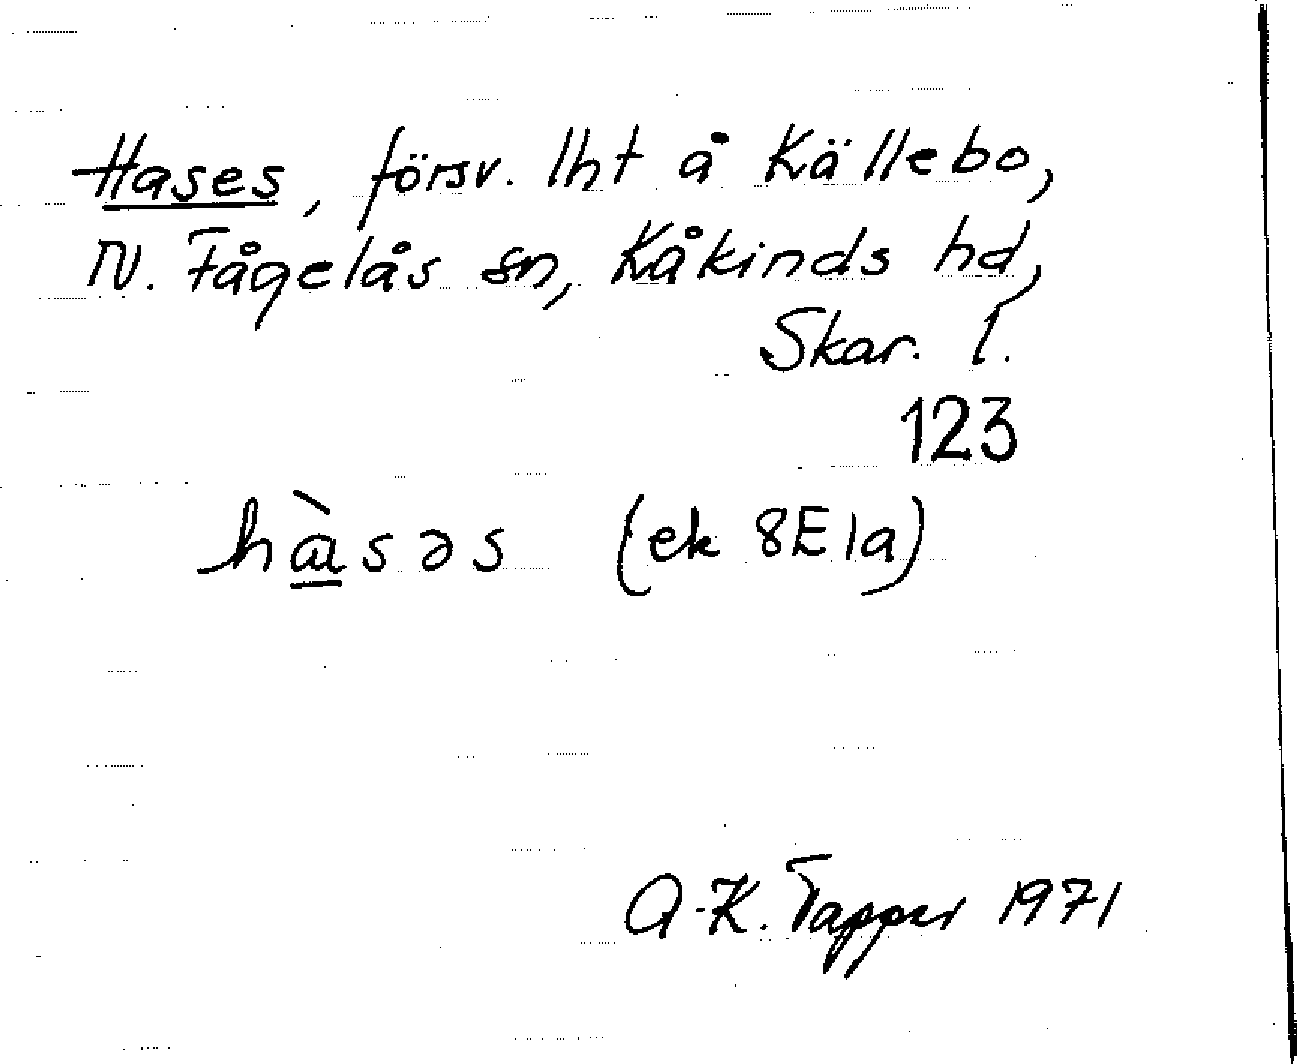 Hases, försv. lht å Källebo,
N. Fågelås sn, Kåkinds hd,
Skar. l.
123
hàsəs (ek 8E1a)
A-K. Tapper 1971